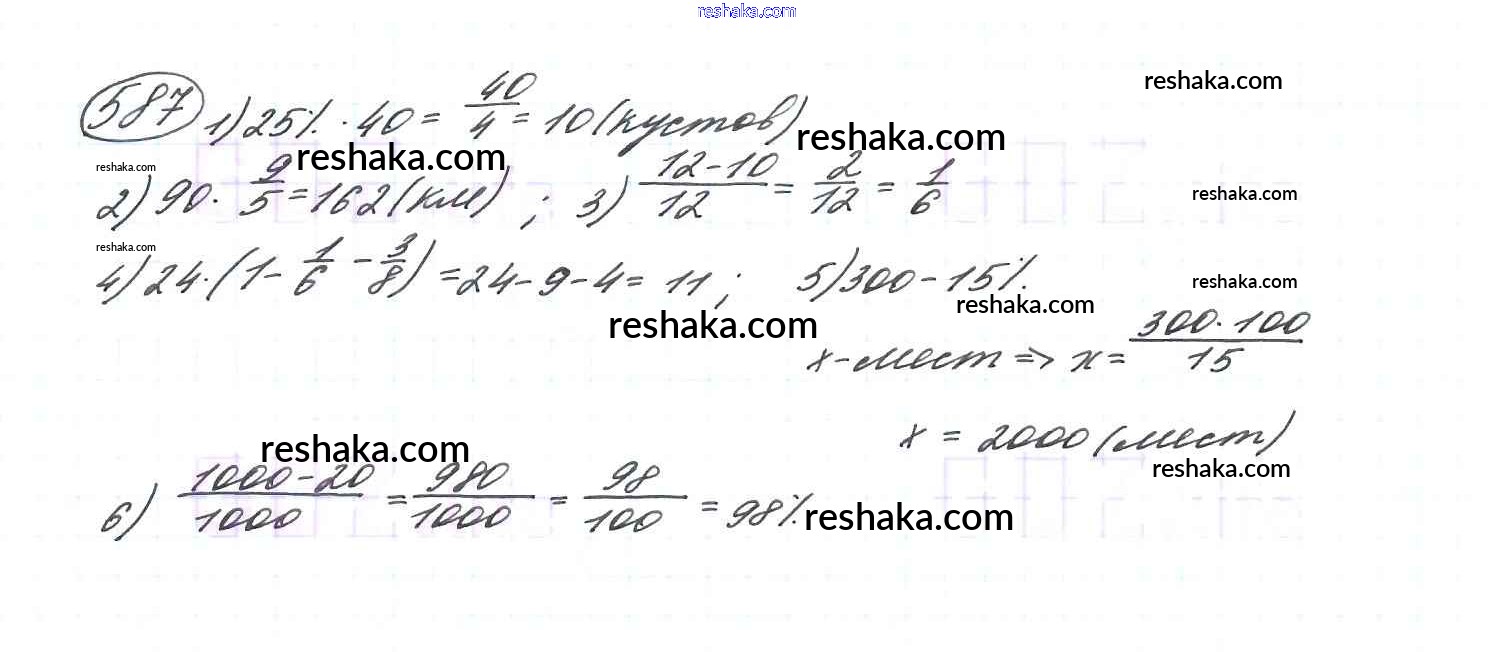 reshaka.com
reshaka.com
587 1) 25% · 40 = 40/4 = 10 (кустов) reshaka.com
reshaka.com
reshaka.com 2) 90 · 9/5 = 162 (км) ; 3) (12-10)/12 = 2/12 = 1/6 reshaka.com
reshaka.com
4) 24 · (1 - 1/6 - 3/8) = 24 - 9 - 4 = 11 ; 5) 300 - 15% reshaka.com
reshaka.com reshaka.com
x - мест => x = (300 · 100)/15
x = 2000 (мест)
reshaka.com reshaka.com
6) (1000-20)/1000 = 980/1000 = 98/100 = 98% reshaka.com